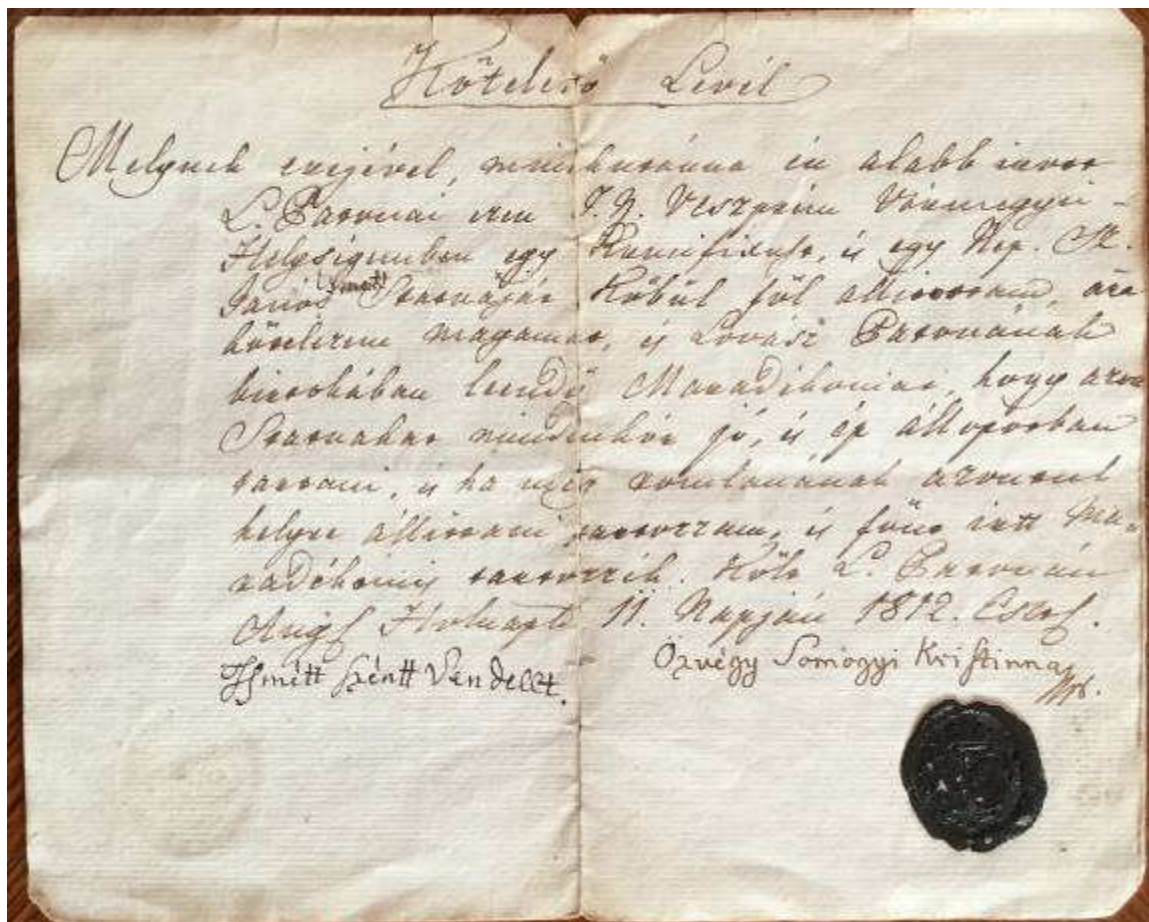 Kötelező Levél
Melynek erejével, minekutánna én alább irott
L. Patonai ezen T. N. Veszprém Vármegyei
Helységemben egy Krucifixust, és egy Nep. St.
János Statuáját Kőbül föl állittottam, arra
kötelezem magamat, és Lovász Patonának
birtokában leendő Maradékimat, hogy azon
Statuákat mindenkór jó, és ép állopotban
tartani, és ha még romlanának azonnal
helyre állittani tartozzam, és fönt irtt Ma-
radékomis tartozzék. Költ L. Patonán
11. Napján 1812. Eszt.
Ismétt Széntt Vendelt.
Özvégy Somogyi Kristinna